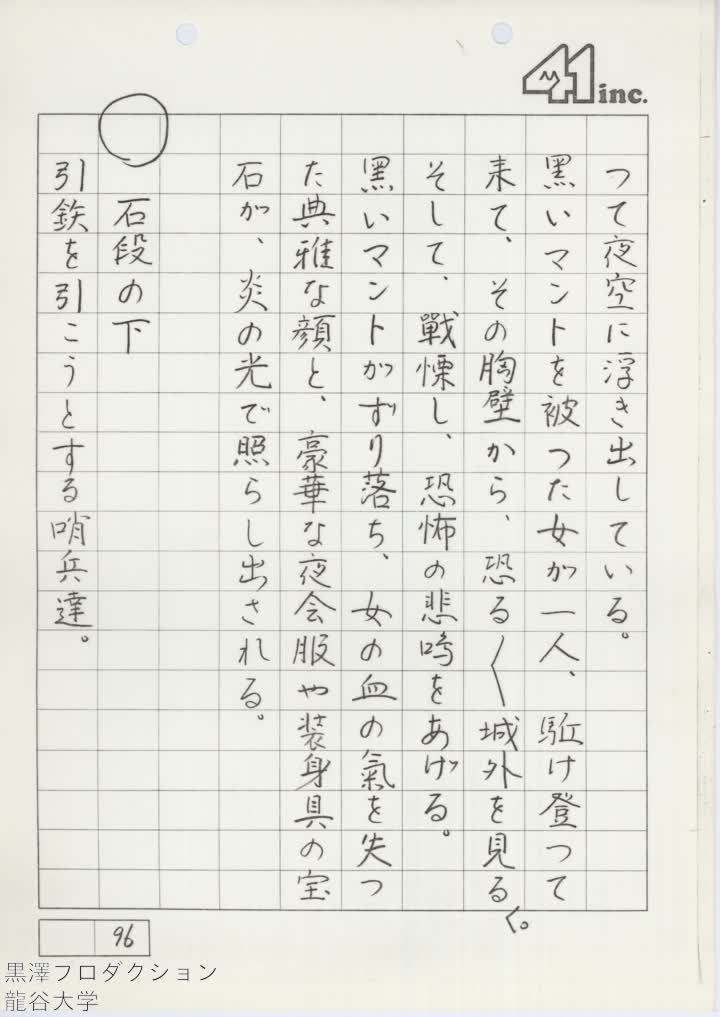 41 inc.
つて夜空に浮き出している。
黒いマントを被つた女が一人、駈け登つて
来て、その胸壁から、恐る〱城外を見る〱。
そして、戰慄し、恐怖の悲鳴をあげる。
黒いマントがずり落ち、女の血の氣を失つ
た典雅な顔と、豪華な夜会服や装身具の宝
石が、炎の光で照らし出される。
○石段の下
引鉄を引こうとする哨兵達。
96
黒澤プロダクション
龍谷大学